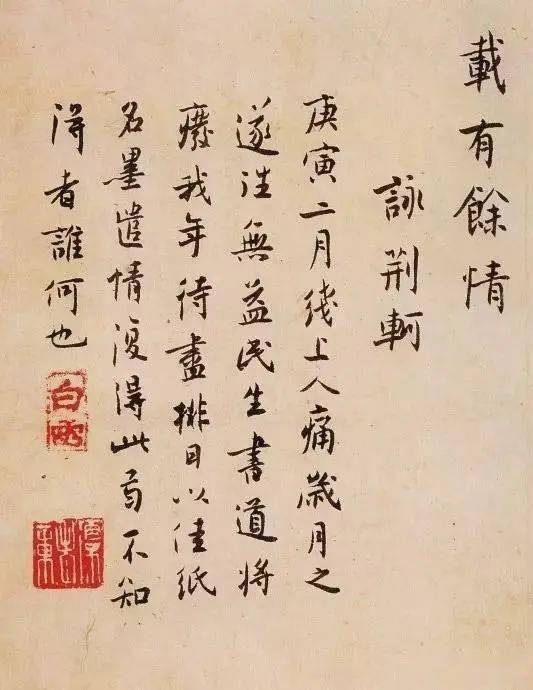 載有餘情
詠荆軻
庚寅二月綫上人痛歲月之
遂往無益民生書道將
廢我年待盡排日以佳紙
名墨遣情復得此不知
得者誰何也